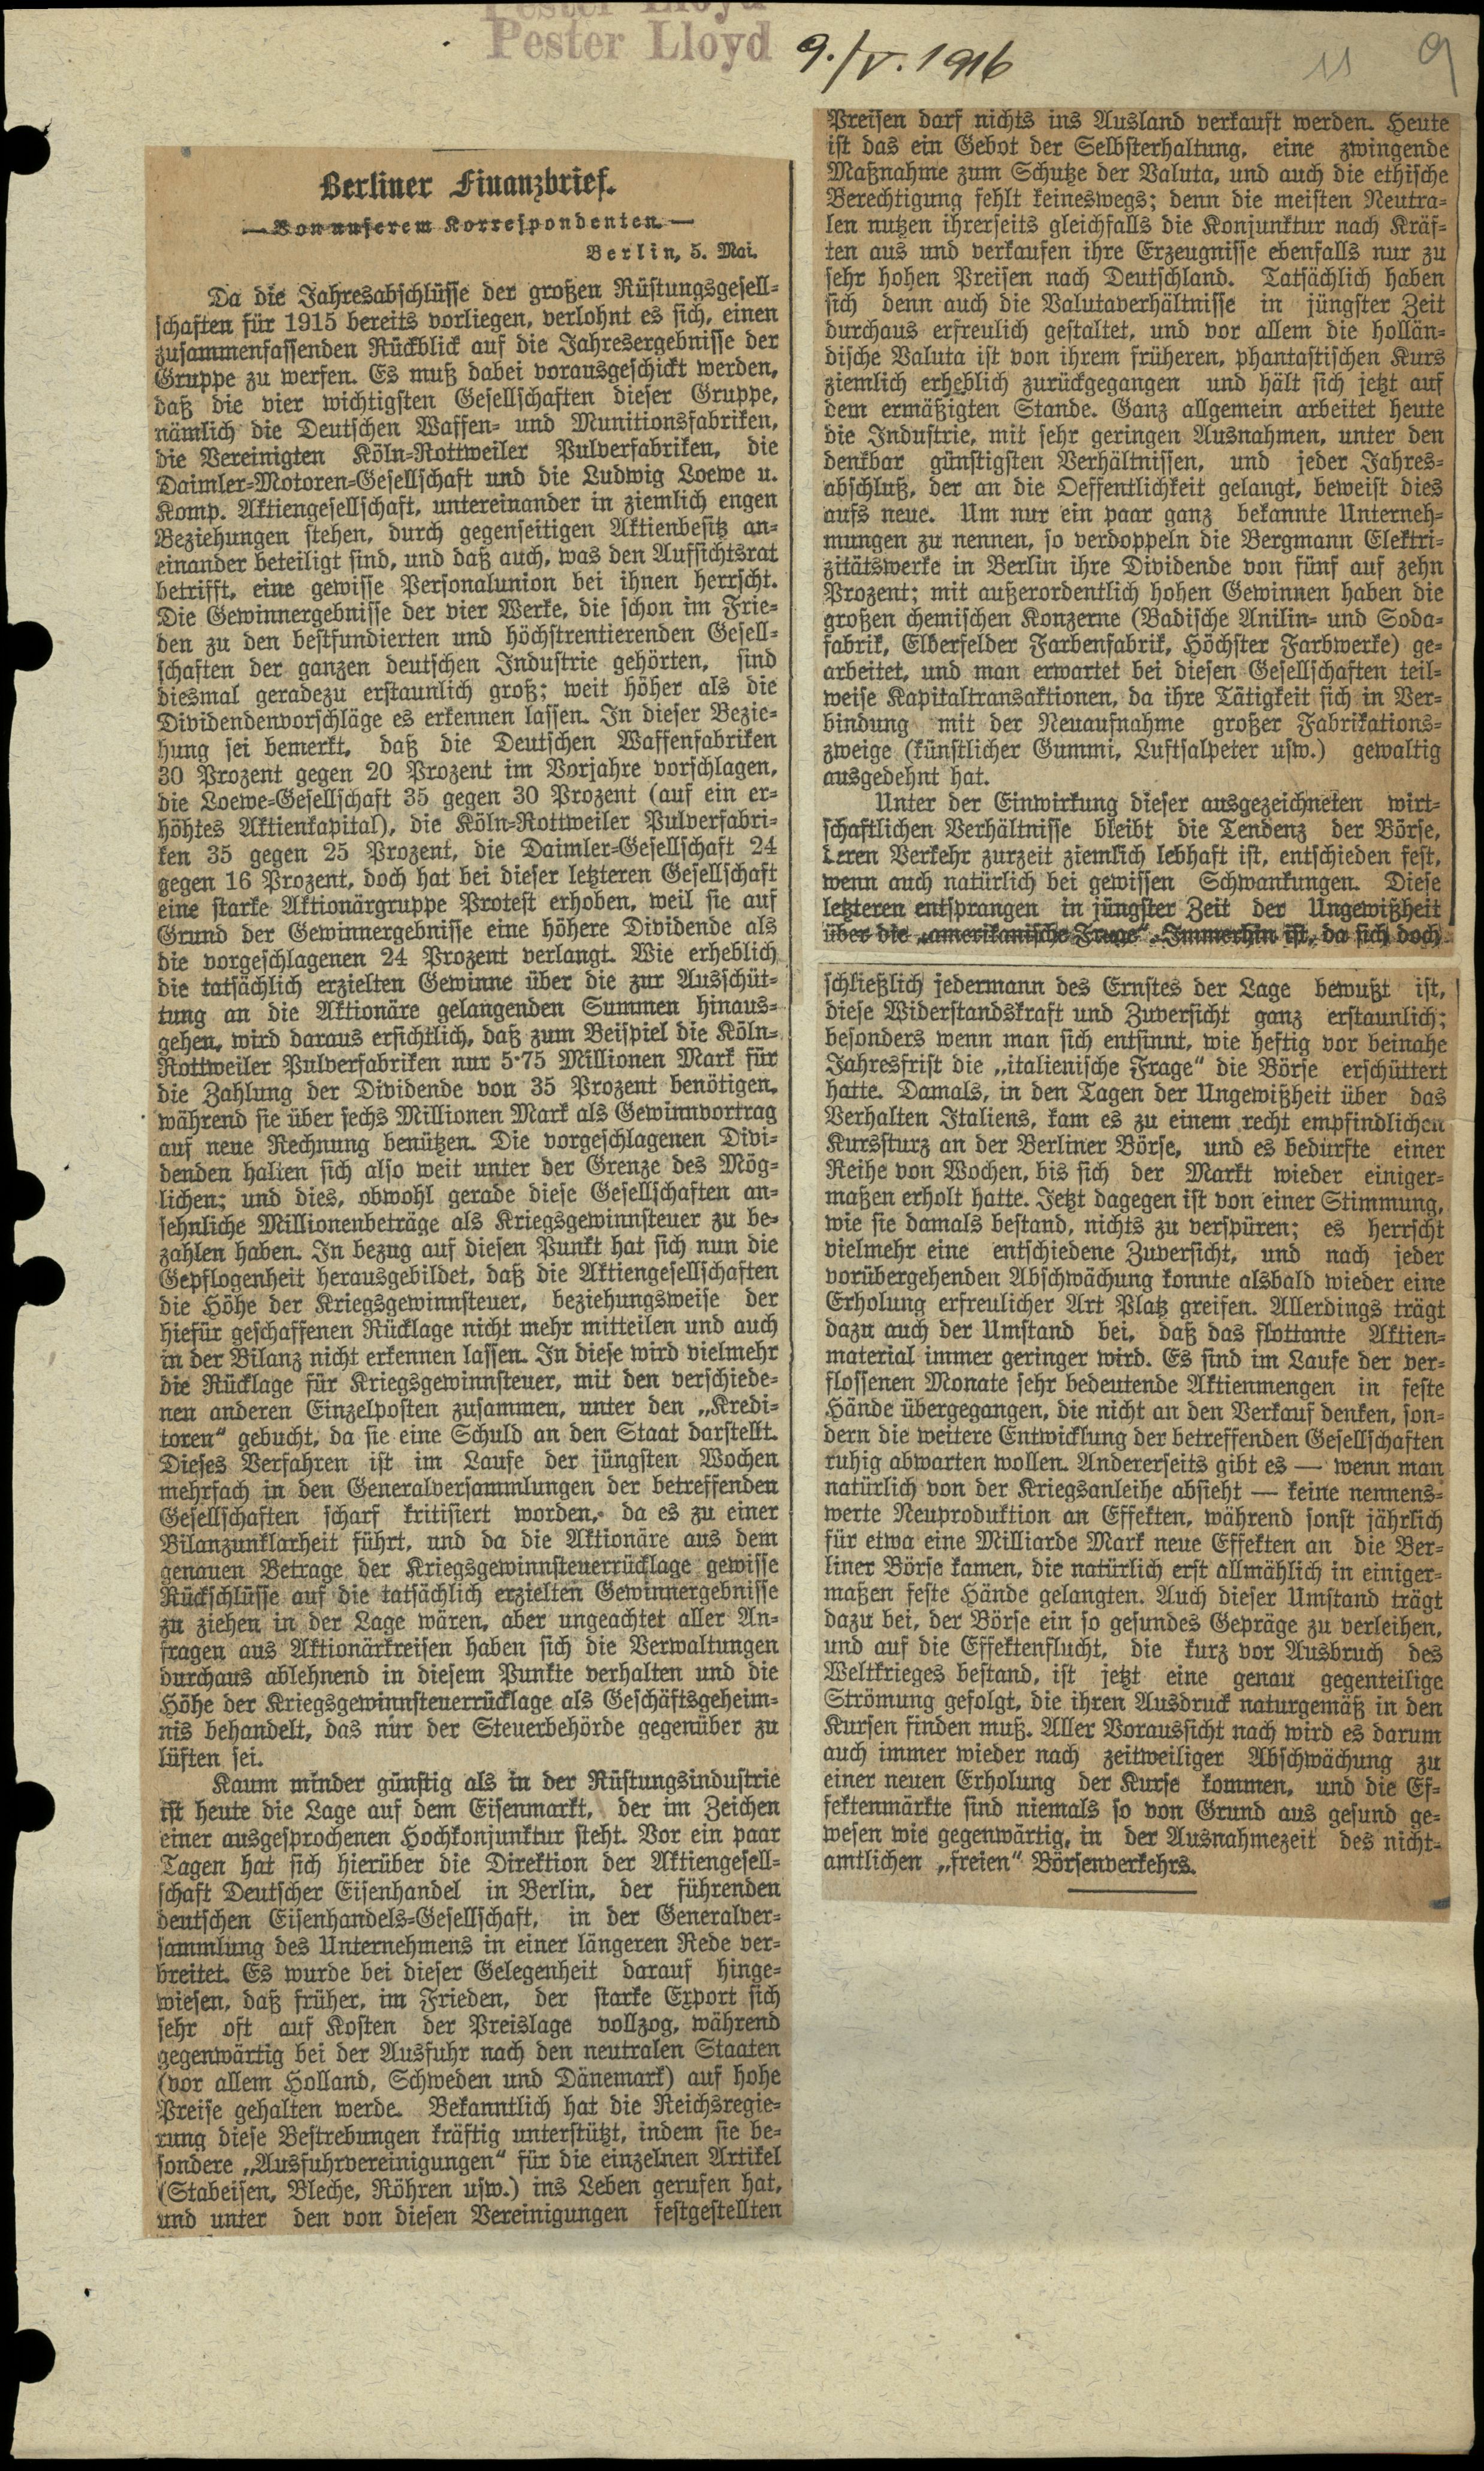 Pester Lloyd
Pester Lloyd
9./V. 1916
11
9
Berliner Finanzbrief.
— Von unserem Korrespondenten. —
Berlin, 5. Mai.
Da die Jahresabschlüsse der großen Rüstungsgesell-
schaften für 1915 bereits vorliegen, verlohnt es sich, einen
zusammenfassenden Rückblick auf die Jahresergebnisse der
Gruppe zu werfen. Es muß dabei vorausgeschickt werden,
daß die vier wichtigsten Gesellschaften dieser Gruppe,
nämlich die Deutschen Waffen- und Munitionsfabriken,
die Vereinigten Köln-Rottweiler Pulverfabriken, die
Daimler-Motoren-Gesellschaft und die Ludwig Loewe u.
Komp. Aktiengesellschaft, untereinander in ziemlich engen
Beziehungen stehen, durch gegenseitigen Aktienbesitz an-
einander beteiligt sind, und daß auch, was den Aufsichtsrat
betrifft, eine gewisse Personalunion bei ihnen herrscht.
Die Gewinnergebnisse der vier Werke, die schon im Frie-
den zu den bestfundierten und höchstrentierenden Gesell-
schaften der ganzen deutschen Industrie gehörten, sind
diesmal geradezu erstaunlich groß; weit höher als die
Dividendenvorschläge es erkennen lassen. In dieser Bezie-
hung sei bemerkt, daß die Deutschen Waffenfabriken
30 Prozent gegen 20 Prozent im Vorjahre vorschlagen,
die Loewe-Gesellschaft 35 gegen 30 Prozent (auf ein er-
höhtes Aktienkapital), die Köln-Rottweiler Pulverfabri-
ken 35 gegen 25 Prozent, die Daimler-Gesellschaft 24
gegen 16 Prozent, doch hat bei dieser letzteren Gesellschaft
eine starke Aktionärgruppe Protest erhoben, weil sie auf
Grund der Gewinnergebnisse eine höhere Dividende als
die vorgeschlagenen 24 Prozent verlangt. Wie erheblich
die tatsächlich erzielten Gewinne über die zur Ausschüt-
tung an die Aktionäre gelangenden Summen hinaus-
gehen, wird daraus ersichtlich, daß zum Beispiel die Köln-
Rottweiler Pulverfabriken nur 5·75 Millionen Mark für
die Zahlung der Dividende von 35 Prozent benötigen,
während sie über sechs Millionen Mark als Gewinnvortrag
auf neue Rechnung benützen. Die vorgeschlagenen Divi-
denden halten sich also weit unter der Grenze des Mög-
lichen; und dies, obwohl gerade diese Gesellschaften an-
sehnliche Millionenbeträge als Kriegsgewinnsteuer zu be-
zahlen haben. In bezug auf diesen Punkt hat sich nun die
Gepflogenheit herausgebildet, daß die Aktiengesellschaften
die Höhe der Kriegsgewinnsteuer, beziehungsweise der
hiefür geschaffenen Rücklage nicht mehr mitteilen und auch
in der Bilanz nicht erkennen lassen. In diese wird vielmehr
die Rücklage für Kriegsgewinnsteuer, mit den verschiede-
nen anderen Einzelposten zusammen, unter den „Kredi-
toren“ gebucht, da sie eine Schuld an den Staat darstellt.
Dieses Verfahren ist im Laufe der jüngsten Wochen
mehrfach in den Generalversammlungen der betreffenden
Gesellschaften scharf kritisiert worden, da es zu einer
Bilanzunklarheit führt, und da die Aktionäre aus dem
genauen Betrage der Kriegsgewinnsteuerrücklage gewisse
Rückschlüsse auf die tatsächlich erzielten Gewinnergebnisse
zu ziehen in der Lage wären, aber ungeachtet aller An-
fragen aus Aktionärkreisen haben sich die Verwaltungen
durchaus ablehnend in diesem Punkte verhalten und die
Höhe der Kriegsgewinnsteuerrücklage als Geschäftsgeheim-
nis behandelt, das nur der Steuerbehörde gegenüber zu
lüften sei.
Kaum minder günstig als in der Rüstungsindustrie
ist heute die Lage auf dem Eisenmarkt, der im Zeichen
einer ausgesprochenen Hochkonjunktur steht. Vor ein paar
Tagen hat sich hierüber die Direktion der Aktiengesell-
schaft Deutscher Eisenhandel in Berlin, der führenden
deutschen Eisenhandels-Gesellschaft, in der Generalver-
sammlung des Unternehmens in einer längeren Rede ver-
breitet. Es wurde bei dieser Gelegenheit darauf hinge-
wiesen, daß früher, im Frieden, der starke Export sich
sehr oft auf Kosten der Preislage vollzog, während
gegenwärtig bei der Ausfuhr nach den neutralen Staaten
(vor allem Holland, Schweden und Dänemark) auf hohe
Preise gehalten werde. Bekanntlich hat die Reichsregie-
rung diese Bestrebungen kräftig unterstützt, indem sie be-
sondere „Ausfuhrvereinigungen“ für die einzelnen Artikel
(Stabeisen, Bleche, Röhren usw.) ins Leben gerufen hat,
und unter den von diesen Vereinigungen festgestellten
Preisen darf nichts ins Ausland verkauft werden. Heute
ist das ein Gebot der Selbsterhaltung, eine zwingende
Maßnahme zum Schutze der Valuta, und auch die ethische
Berechtigung fehlt keineswegs; denn die meisten Neutra-
len nutzen ihrerseits gleichfalls die Konjunktur nach Kräf-
ten aus und verkaufen ihre Erzeugnisse ebenfalls nur zu
sehr hohen Preisen nach Deutschland. Tatsächlich haben
sich denn auch die Valutaverhältnisse in jüngster Zeit
durchaus erfreulich gestaltet, und vor allem die hollän-
dische Valuta ist von ihrem früheren, phantastischen Kurs
ziemlich erheblich zurückgegangen und hält sich jetzt auf
dem ermäßigten Stande. Ganz allgemein arbeitet heute
die Industrie, mit sehr geringen Ausnahmen, unter den
denkbar günstigsten Verhältnissen, und jeder Jahres-
abschluß, der an die Oeffentlichkeit gelangt, beweist dies
aufs neue. Um nur ein paar ganz bekannte Unterneh-
mungen zu nennen, so verdoppeln die Bergmann Elektri-
zitätswerke in Berlin ihre Dividende von fünf auf zehn
Prozent; mit außerordentlich hohen Gewinnen haben die
großen chemischen Konzerne (Badische Anilin- und Soda-
fabrik, Elberfelder Farbenfabrik, Höchster Farbwerke) ge-
arbeitet, und man erwartet bei diesen Gesellschaften teil-
weise Kapitaltransaktionen, da ihre Tätigkeit sich in Ver-
bindung mit der Neuaufnahme großer Fabrikations-
zweige (künstlicher Gummi, Luftsalpeter usw.) gewaltig
ausgedehnt hat.
Unter der Einwirkung dieser ausgezeichneten wirt-
schaftlichen Verhältnisse bleibt die Tendenz der Börse,
deren Verkehr zurzeit ziemlich lebhaft ist, entschieden fest,
wenn auch natürlich bei gewissen Schwankungen. Diese
letzteren entsprangen in jüngster Zeit der Ungewißheit
über die „amerikanische Frage“. Immerhin ist, da sich doch
schließlich jedermann des Ernstes der Lage bewußt ist,
diese Widerstandskraft und Zuversicht ganz erstaunlich;
besonders wenn man sich entsinnt, wie heftig vor beinahe
Jahresfrist die „italienische Frage“ die Börse erschüttert
hatte. Damals, in den Tagen der Ungewißheit über das
Verhalten Italiens, kam es zu einem recht empfindlichen
Kurssturz an der Berliner Börse, und es bedurfte einer
Reihe von Wochen, bis sich der Markt wieder einiger-
maßen erholt hatte. Jetzt dagegen ist von einer Stimmung,
wie sie damals bestand, nichts zu verspüren; es herrscht
vielmehr eine entschiedene Zuversicht, und nach jeder
vorübergehenden Abschwächung konnte alsbald wieder eine
Erholung erfreulicher Art Platz greifen. Allerdings trägt
dazu auch der Umstand bei, daß das flottante Aktien-
material immer geringer wird. Es sind im Laufe der ver-
flossenen Monate sehr bedeutende Aktienmengen in feste
Hände übergegangen, die nicht an den Verkauf denken, son-
dern die weitere Entwicklung der betreffenden Gesellschaften
ruhig abwarten wollen. Andererseits gibt es — wenn man
natürlich von der Kriegsanleihe absieht — keine nennens-
werte Neuproduktion an Effekten, während sonst jährlich
für etwa eine Milliarde Mark neue Effekten an die Ber-
liner Börse kamen, die natürlich erst allmählich in einiger-
maßen feste Hände gelangten. Auch dieser Umstand trägt
dazu bei, der Börse ein so gesundes Gepräge zu verleihen,
und auf die Effektenflucht, die kurz vor Ausbruch des
Weltkrieges bestand, ist jetzt eine genau gegenteilige
Strömung gefolgt, die ihren Ausdruck naturgemäß in den
Kursen finden muß. Aller Voraussicht nach wird es darum
auch immer wieder nach zeitweiliger Abschwächung zu
einer neuen Erholung der Kurse kommen, und die Ef-
fektenmärkte sind niemals so von Grund aus gesund ge-
wesen wie gegenwärtig, in der Ausnahmezeit des nicht-
amtlichen „freien“ Börsenverkehrs.